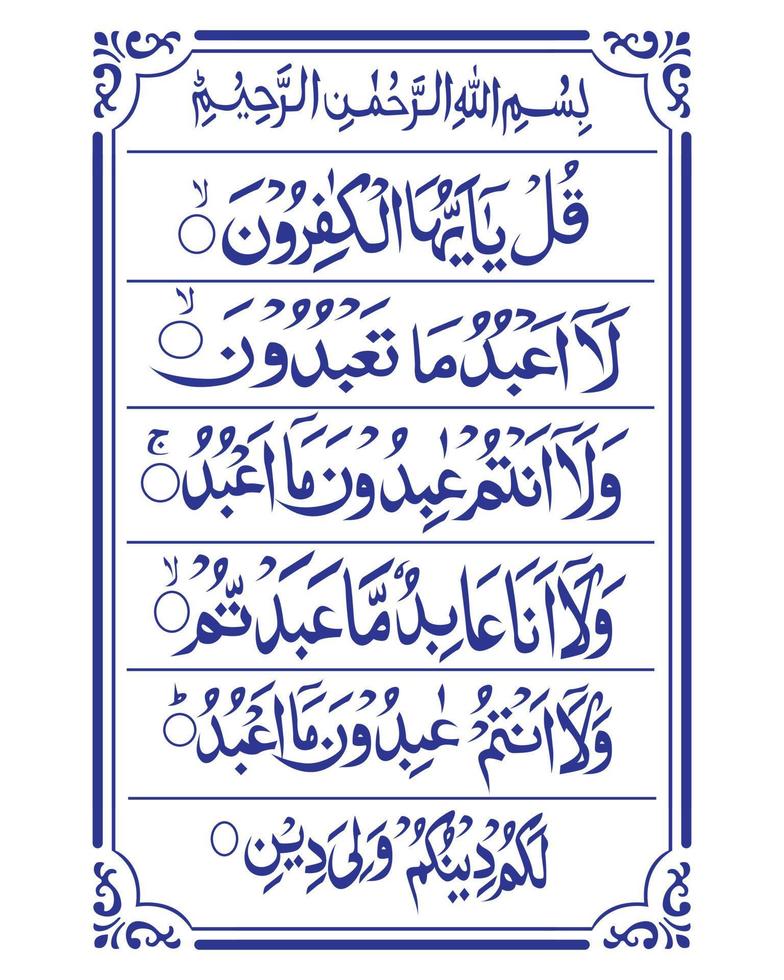 بِسْمِ اللّٰهِ الرَّحْمٰنِ الرَّحِيْمِ ؕ
قُلْ يٰۤاَيُّهَا الْكٰفِرُوْنَ ۙ
لَاۤ اَعْبُدُ مَا تَعْبُدُوْنَ ۙ
وَلَاۤ اَنْتُمْ عٰبِدُوْنَ مَاۤ اَعْبُدُ ۚ
وَلَاۤ اَنَا عَابِدٌ مَّا عَبَدْتُّمْ ۙ
وَلَاۤ اَنْتُمْ عٰبِدُوْنَ مَاۤ اَعْبُدُ ؕ
لَكُمْ دِيْنُكُمْ وَلِىَ دِيْنِ